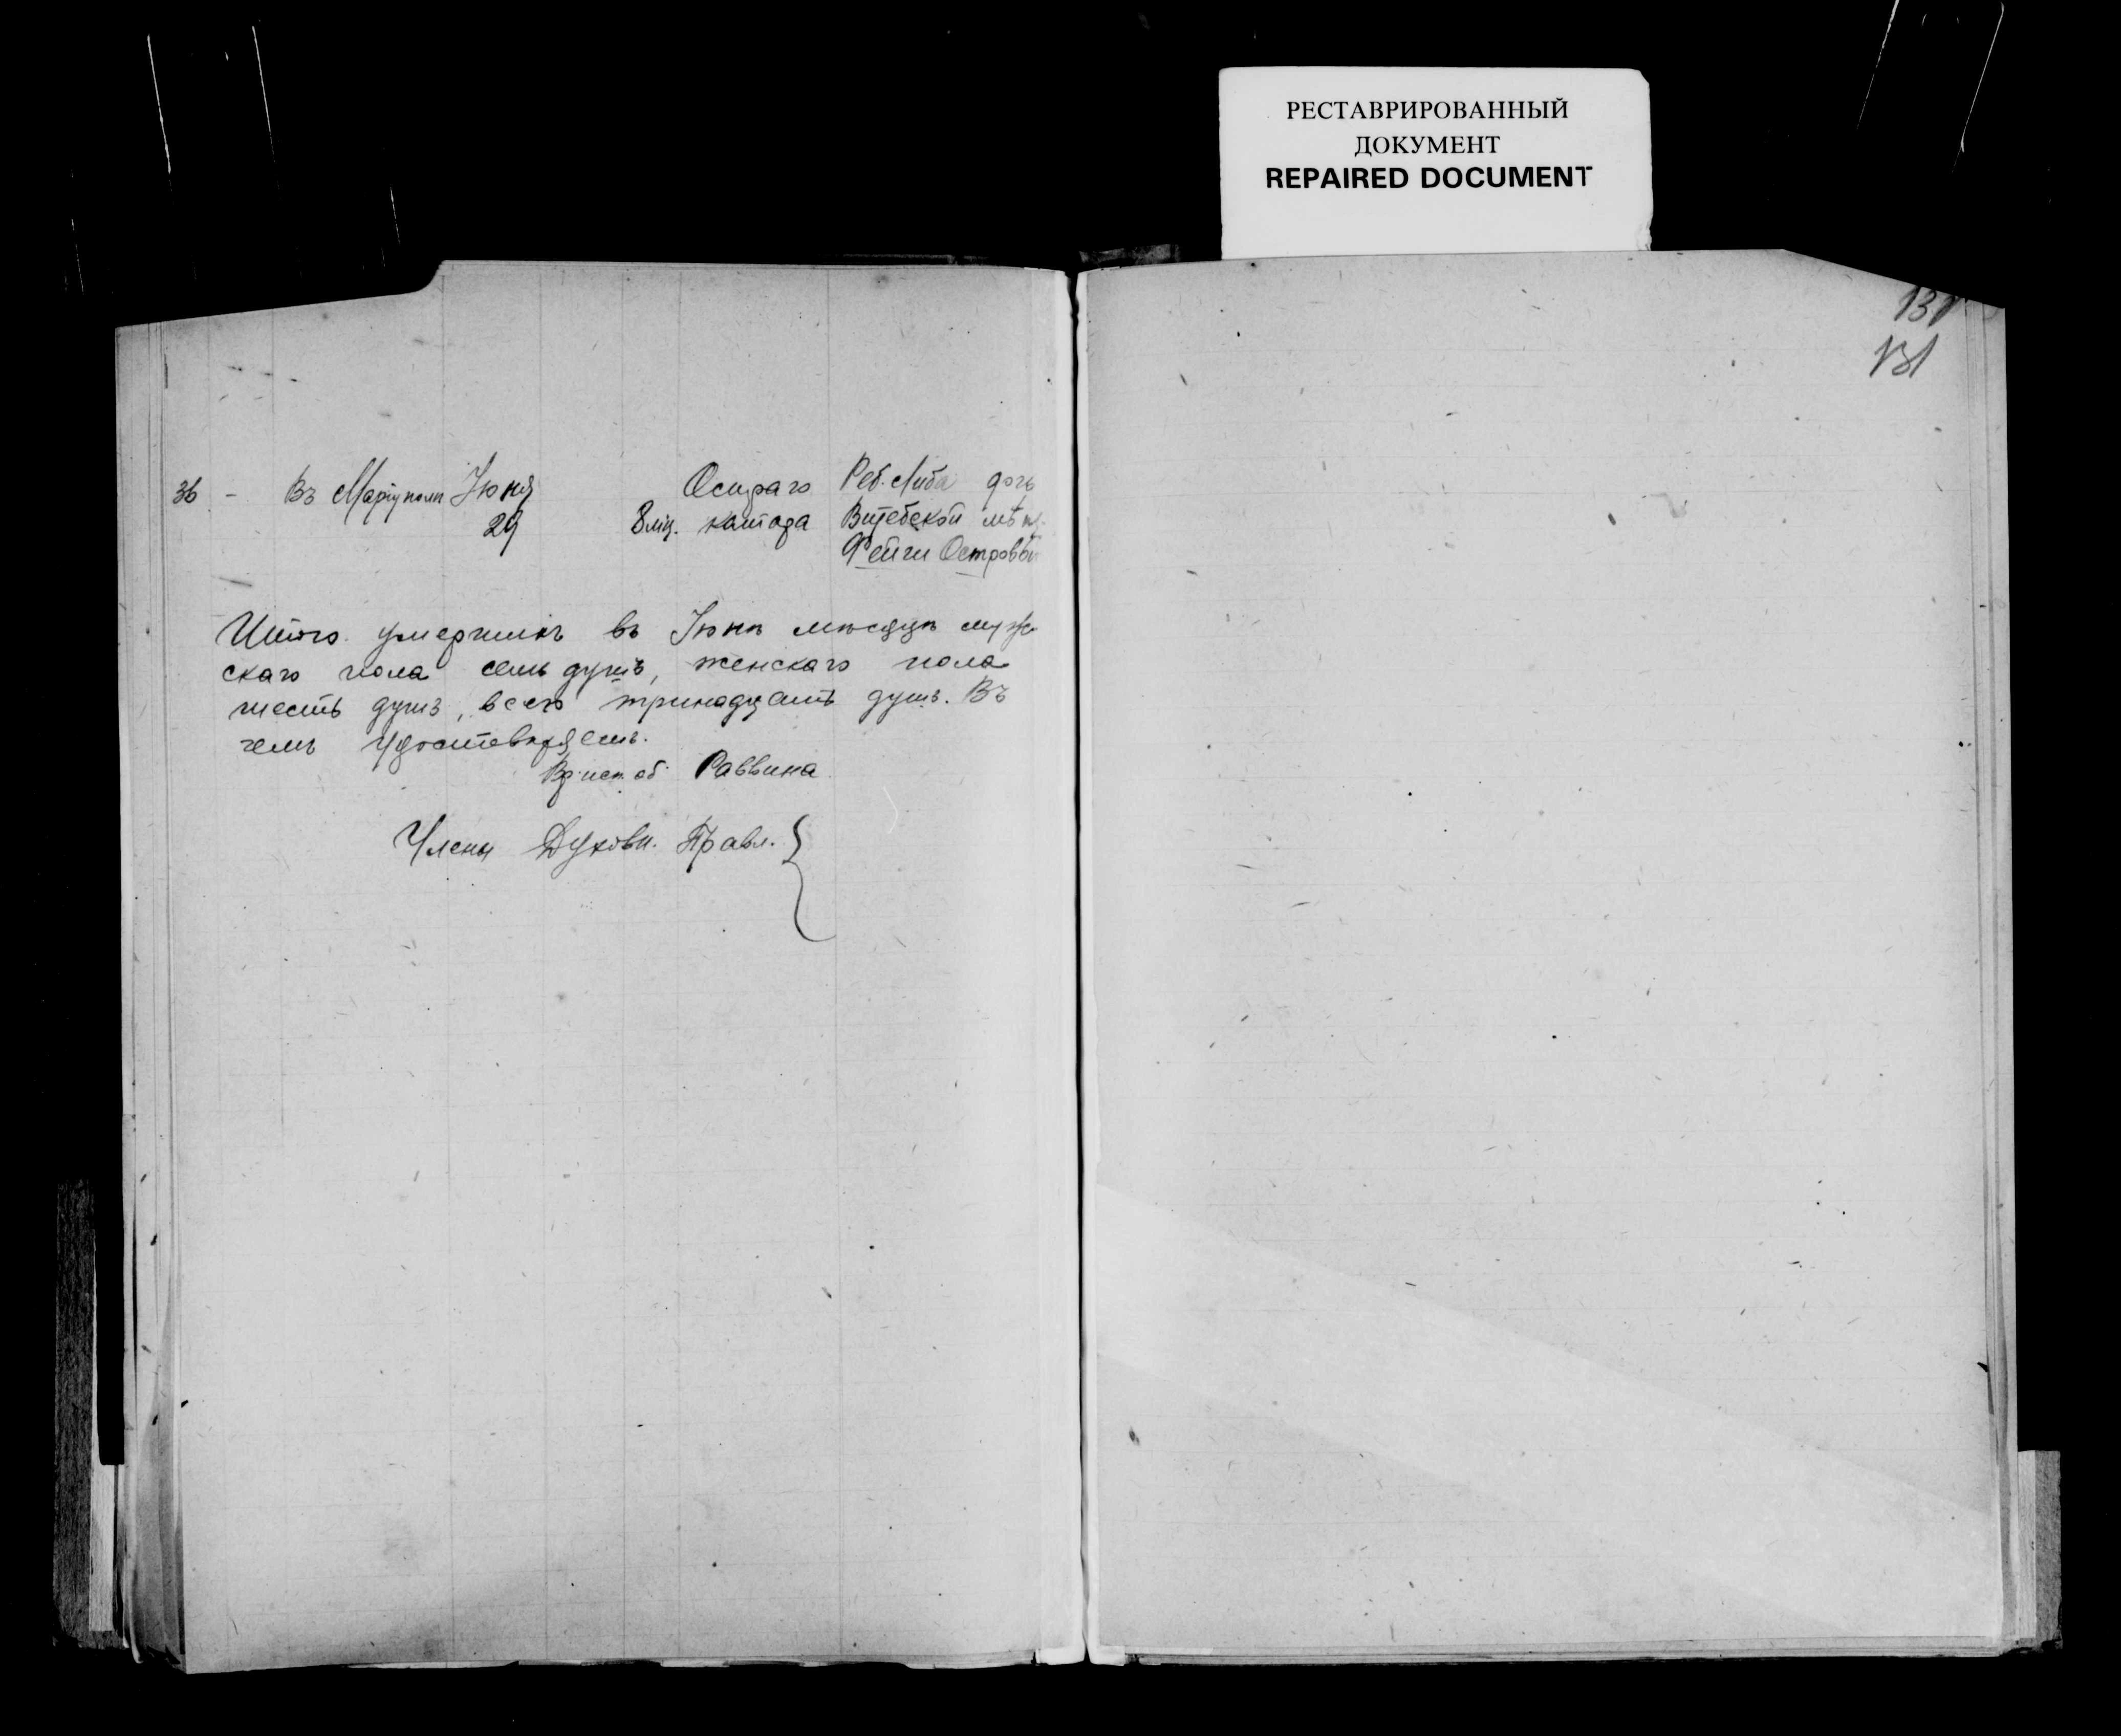 РЕСТАВРИРОВАННЫЙ
ДОКУМЕНТ
REPAIRED DOCUMENT
131
131
36 - Въ Маріуполѣ Іюня Остраго Реб. Либа дочь
29 8 мѣ. катара Витебской мѣщ.
Фейги Островой
Итого умершихъ въ Іюнѣ мѣсяцѣ муже
скаго пола семь душъ, женскаго пола
шесть душъ, всего тринадцать душъ. Въ
чемъ удостовѣряемъ.
Раввина
Члены Духовн. Правл.